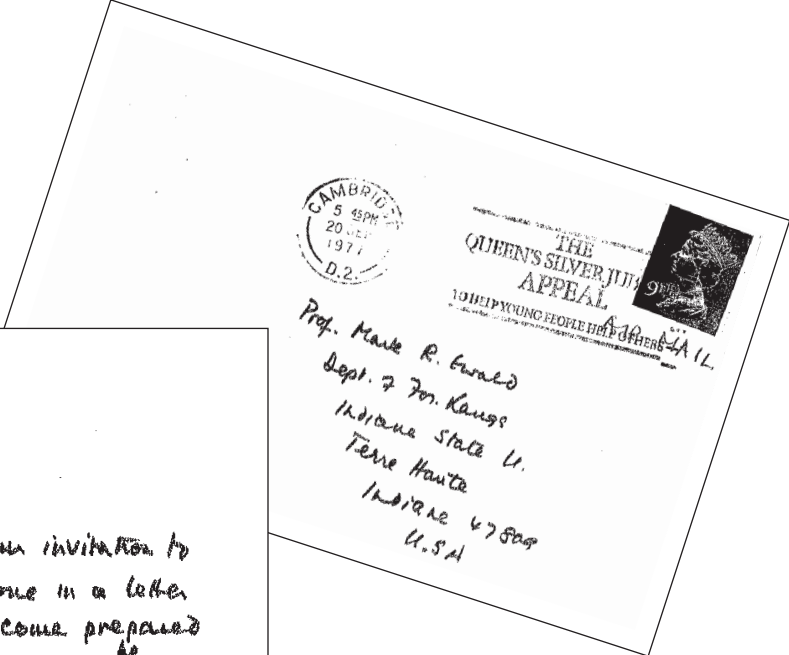 CAMBRIDGE
5 45PM
20 SEP
1977
D.2.
THE
QUEEN'S SILVER JUB
APPEAL
TO HELP YOUNG PEOPLE HELP OTHERS
9
AIR MAIL
Prof. Mark R. Ewald
Dept. of For. Langs
Indiana State U.
Terre Haute
Indiana 47809
U.S.A
invitation to
in a letter
come prepared